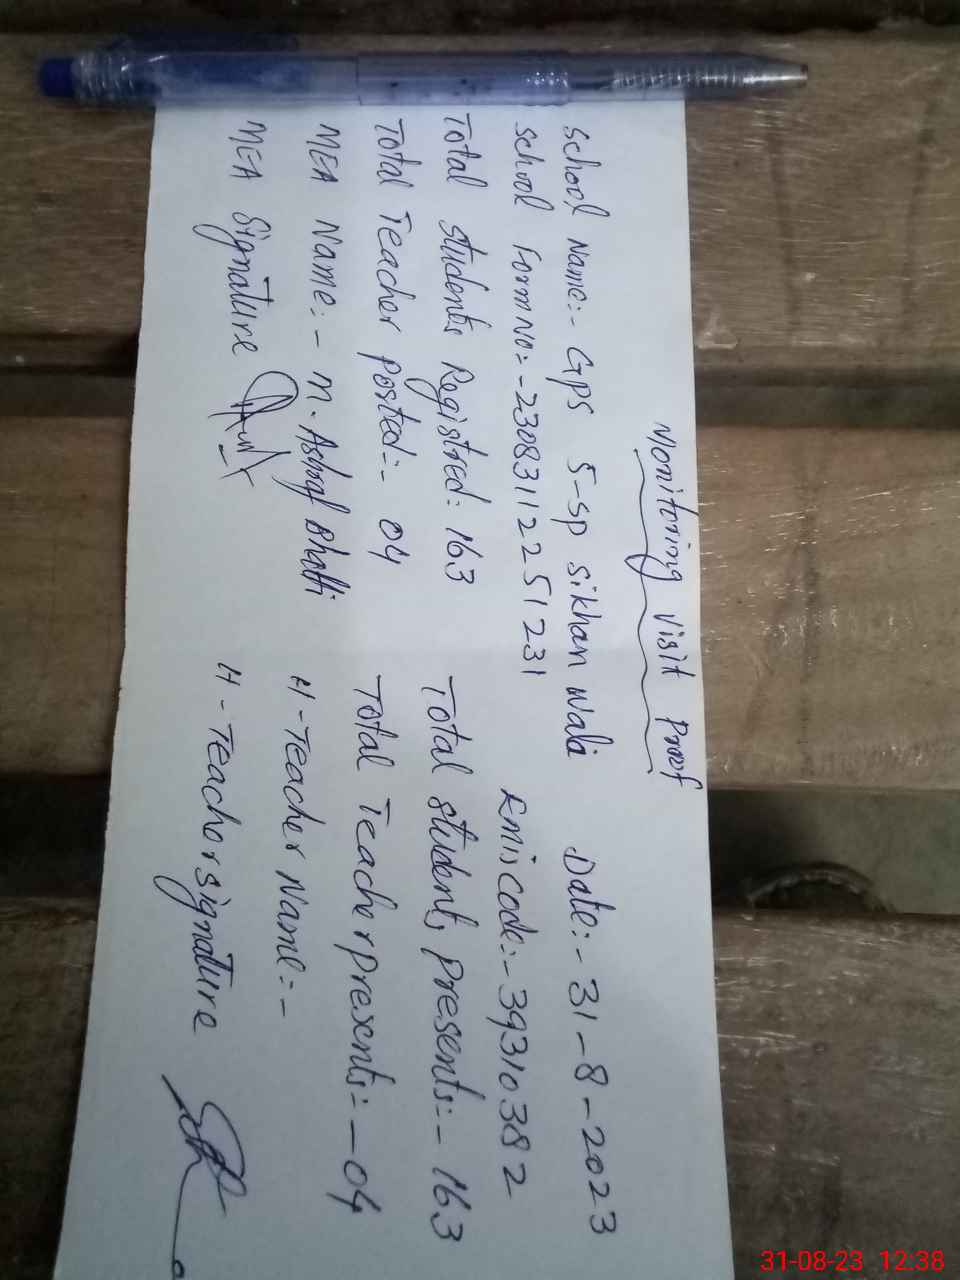 Monitoring visit Proof
School Name:- GPS 5-SP Sikhan Wala Date:- 31-8-2023
School Form No:-23083112251231 Emis code:-39310382
Total Students Registred: 163 Total students presents:- 163
Total Teacher Posted:- 04 Total Teacher presents:- 04
MEA Name:- M. Ashraf Bhatti H-Teacher Name:-
MEA Signature H-Teacher signature
31-08-23 12:38